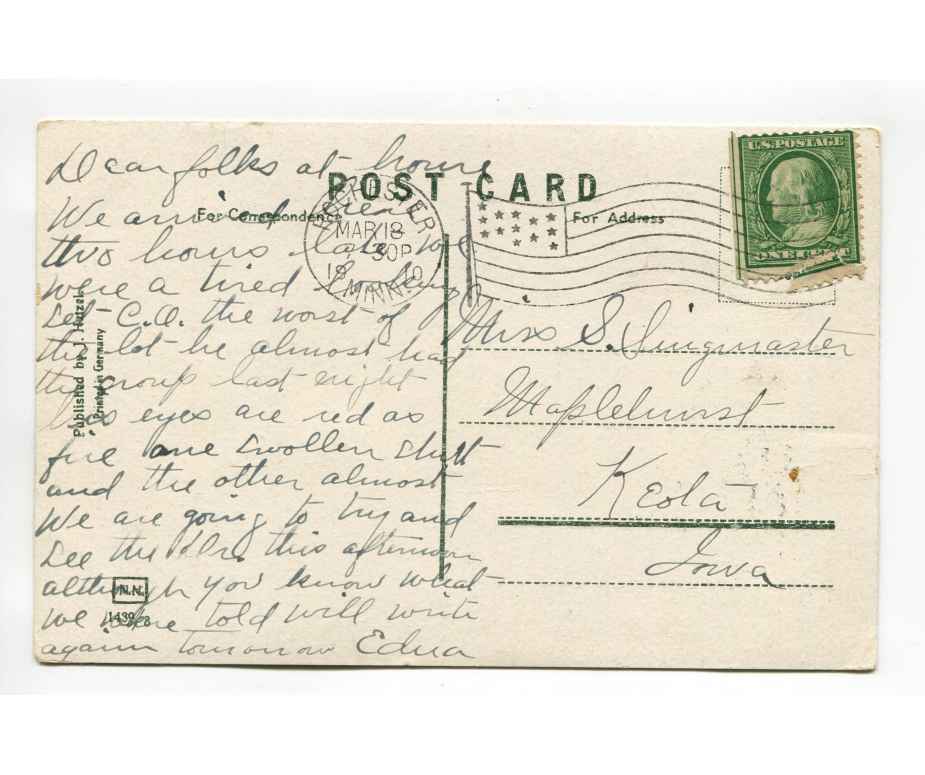 POST CARD
For Correspondence
For Address
Dear folks at home
We arrived here
two hours late we
were a tired looking
set - C.O. the worst of
the lot he almost had
the croup last night
his eyes are red as
fire one swollen shut
and the other almost
We are going to try and
see the Drs. this afternoon
although you know what
we where told will write
again tomorrow Edna
Published by J. Hutzel
Printed in Germany
N.N.
1439/8
ROCHESTER
MAR 18
30P
1910
MINN.
U.S. POSTAGE
ONE CENT
Miss S. Singmaster
Maplehurst
Keota
Iowa